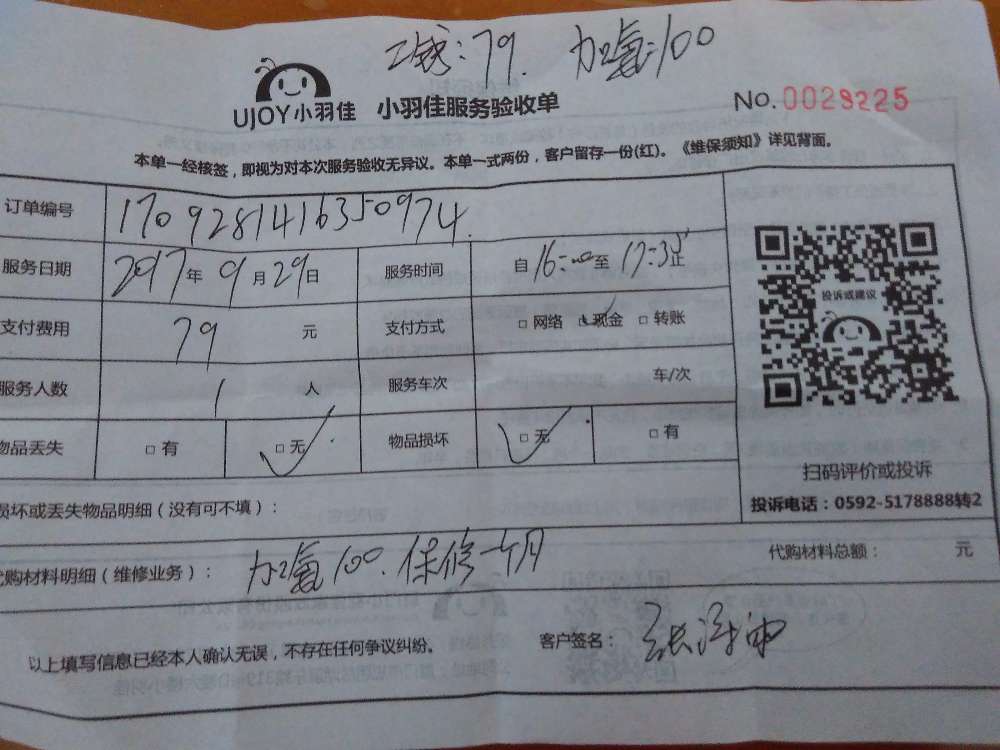 工钱:79. 加氨:100
UJOY小羽佳 小羽佳服务验收单 No.0029225
本单一经核签，即视为对本次服务验收无异议。本单一式两份，客户留存一份(红)。《维保须知》详见背面。
订单编号 170928141635097​4
服务日期 2017年9月29日 服务时间 自16:00至17:30止
支付费用 79 元 支付方式 □网络 □现金 □转账
服务人数 1 人 服务车次 车/次
物品丢失 □有 □无 物品损坏 □无 □有
投诉或建议
扫码评价或投诉
投诉电话：0592-5178888转2
损坏或丢失物品明细（没有可不填）：
代购材料明细（维修业务）： 加氨100.保修一个月 代购材料总额： 元
以上填写信息已经本人确认无误，不存在任何争议纠纷。 客户签名：